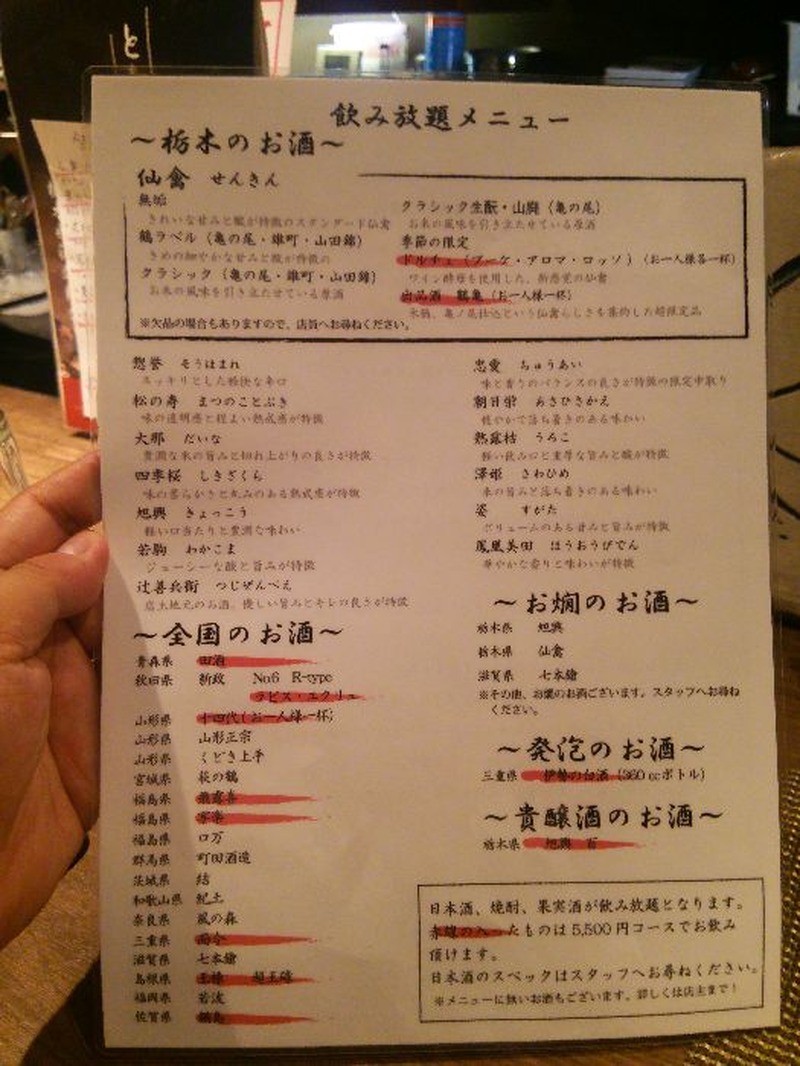 飲み放題メニュー
～栃木のお酒～
仙禽 せんきん
無垢
きれいな甘みと酸が特徴のスタンダード仙禽
鶴ラベル（亀の尾・雄町・山田錦）
きめの細やかな甘みと酸が特徴の
クラシック（亀の尾・雄町・山田錦）
お米の風味を引き立たせている原酒
クラシック生酛・山廃（亀の尾）
お米の風味を引き立たせている原酒
季節の限定
ドルチェ（ブーケ・アロマ・ロッソ）（お一人様各一杯）
ワイン酵母を使用した、新感覚の仙禽
出品酒 鶴亀（お一人様一杯）
木桶、亀ノ尾仕込という仙禽らしさを集約した超限定品
※欠品の場合もありますので、店員へお尋ねください。
惣誉 そうほまれ
スッキリとした軽快な辛口
松の寿 まつのことぶき
味の透明感と程よい熟成感が特徴
大那 だいな
豊潤な米の旨みと切れ上がりの良さが特徴
四季桜 しきざくら
味の柔らかさと丸みのある熟成感が特徴
旭興 きょっこう
軽い口当たりと豊潤な味わい
若駒 わかこま
ジューシーな酸と旨みが特徴
辻善兵衛 つじぜんべえ
店主地元のお酒。優しい旨みとキレの良さが特徴
忠愛 ちゅうあい
味と香りのバランスの良さが特徴の限定中取り
朝日栄 あさひさかえ
軽やかで落ち着きのある味わい
熟露枯 うろこ
軽い飲み口と重厚な旨みと酸が特徴
澤姫 さわひめ
米の旨みと落ち着きのある味わい
姿 すがた
ボリュームのある甘みと旨みが特徴
鳳凰美田 ほうおうびでん
華やかな香りと味わいが特徴
～全国のお酒～
青森県 田酒
秋田県 新政 No6 R-type
ラピス・エクリュ
山形県 十四代（お一人様一杯）
山形県 山形正宗
山形県 くどき上手
宮城県 萩の鶴
福島県 飛露喜
福島県 寫楽
福島県 ロ万
群馬県 町田酒造
茨城県 結
和歌山県 紀土
奈良県 風の森
三重県 而今
滋賀県 七本鎗
島根県 王祿 超王祿
福岡県 若波
佐賀県 鍋島
～お燗のお酒～
栃木県 旭興
栃木県 仙禽
滋賀県 七本鎗
※その他、お燗のお酒ございます。スタッフへお尋ね
ください。
～発泡のお酒～
三重県 伊勢の白酒（360ccボトル）
～貴醸酒のお酒～
栃木県 旭興 百
日本酒、焼酎、果実酒が飲み放題となります。
赤線の入ったものは5,500円コースでお飲み
頂けます。
日本酒のスペックはスタッフへお尋ねください。
※メニューに無いお酒もございます。詳しくは店主まで！